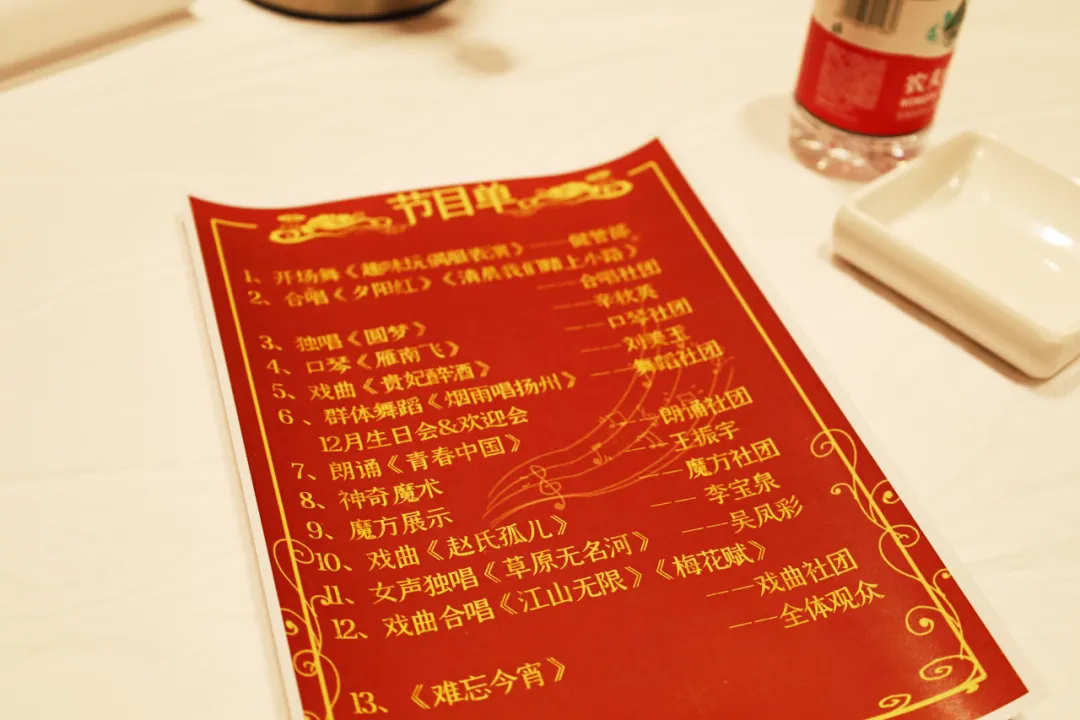 节目单
1、开场舞《趣味玩偶服表演》——督管部
2、合唱《夕阳红》《清晨我们踏上小路》
——合唱社团
3、独唱《圆梦》 ——辛秋英
4、口琴《雁南飞》 ——口琴社团
5、戏曲《贵妃醉酒》 ——刘美玉
6、群体舞蹈《烟雨唱扬州》 ——舞蹈社团
12月生日会&欢迎会
7、朗诵《青春中国》 ——朗诵社团
8、神奇魔术 ——王振宇
9、魔方展示 ——魔方社团
10、戏曲《赵氏孤儿》 ——李宝泉
11、女声独唱《草原无名河》 ——吴凤彩
12、戏曲合唱《江山无限》《梅花赋》
——戏曲社团
13、《难忘今宵》 ——全体观众